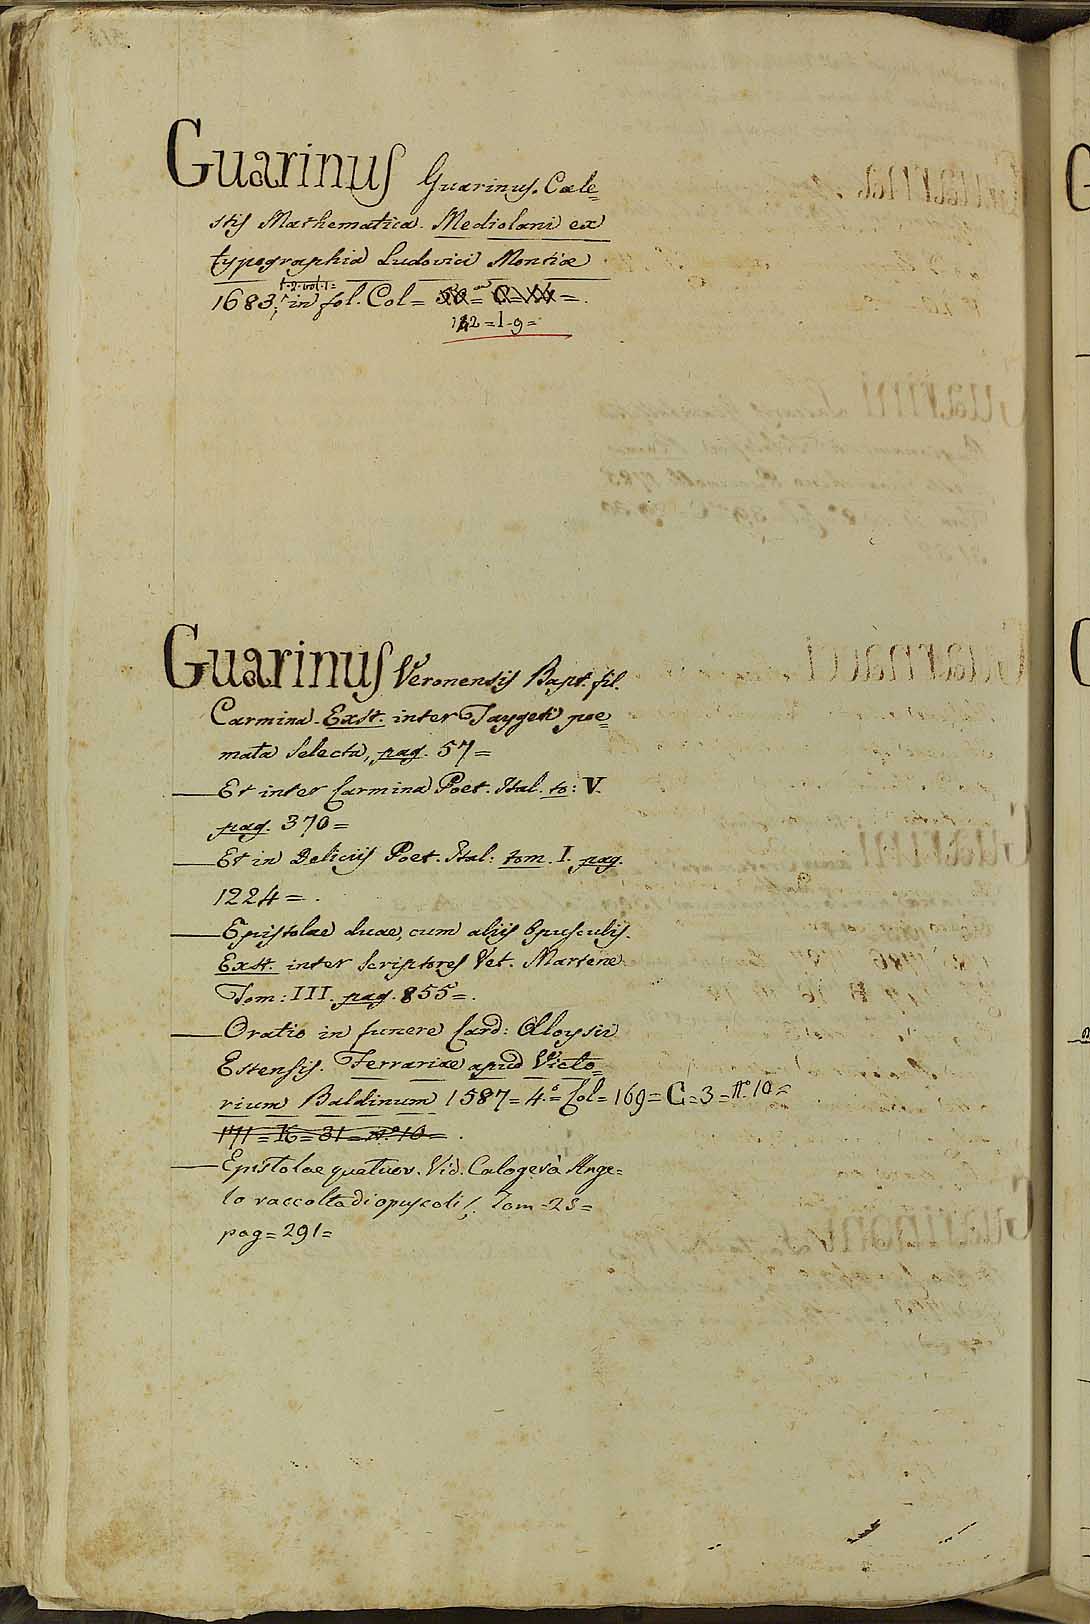 Guarinus Guarinus. Cæle=
stis Mathematica. Mediolani ex
typographia Ludovici Montiæ
t. 2. vol. 1=
1683; in fol. Col=
142 = I - 9 =
Guarinus Veronensis Bapt. fil.
Carmina. Exst. inter Taygeti poe=
mata selecta, pag. 57=
Et inter Carmina Poet. Ital. to: V.
pag. 370=
Et in Deliciis Poet. Ital: tom. I. pag.
1224=.
Epistolae duae, cum aliis Opusculis.
Exst. inter Scriptores Vet. Martene
Tom: III. pag. 855=.
Oratio in funere Card: Aloysii
Estensis. Ferrariæ apud Victo=
rium Baldinum 1587= 4.°= Col= 169= C=3= n.° 10=
171=K=31= n.° 10=.
Epistolae quatuor. Vid. Calogerà Ange=
lo raccolta di opuscoli Tom=25=
pag=291=